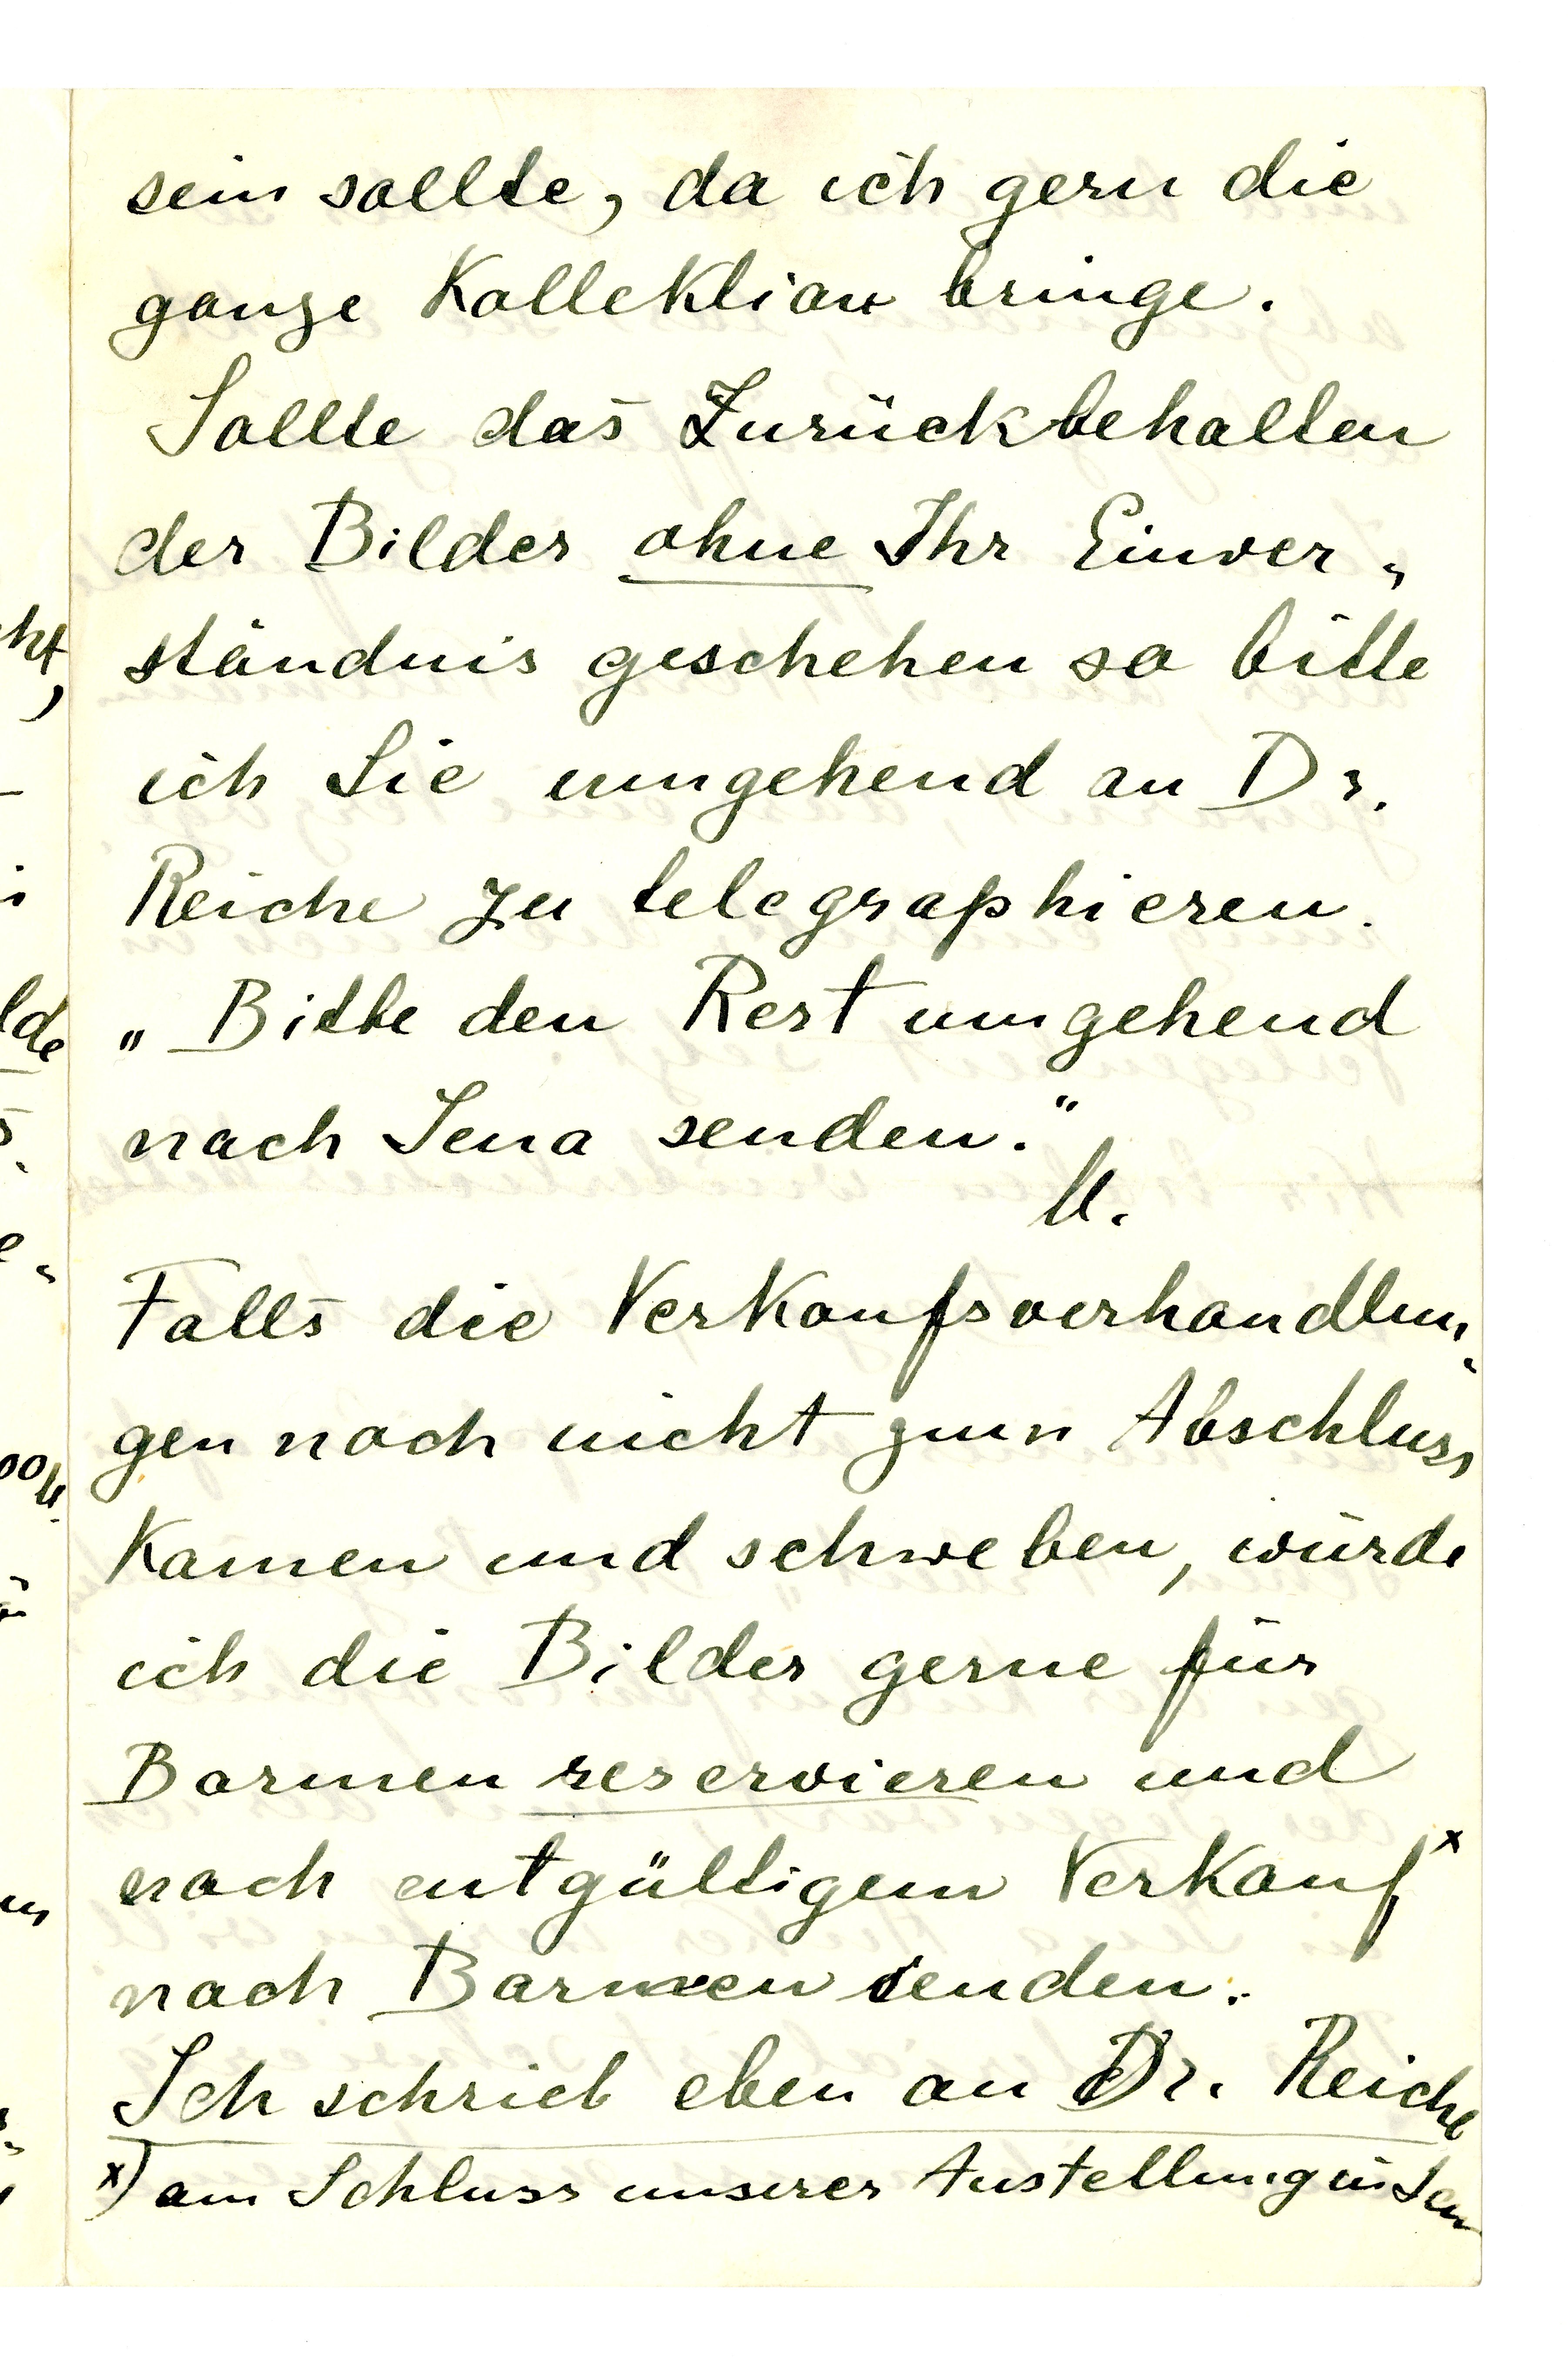 sein sollte, da ich gern die
ganze Kollektion bringe.
Sollte das Zurückbehalten
der Bilder ohne Ihr Einver„
ständnis geschehen so bitte
ich Sie umgehend an Dr.
Reiche zu telegraphieren.
„Bitte den Rest umgehend
nach Jena senden.“
M.
Falls die Verkaufsverhandlun„
gen noch nicht zum Abschluss
kamen und schweben, würde
ich die Bilder gerne für
Barmen reservieren und
nach entgültigem Verkauf x
nach Barmen senden.
Ich schrieb eben an Dr. Reiche
x) am Schluss unserer Austellung in Jena